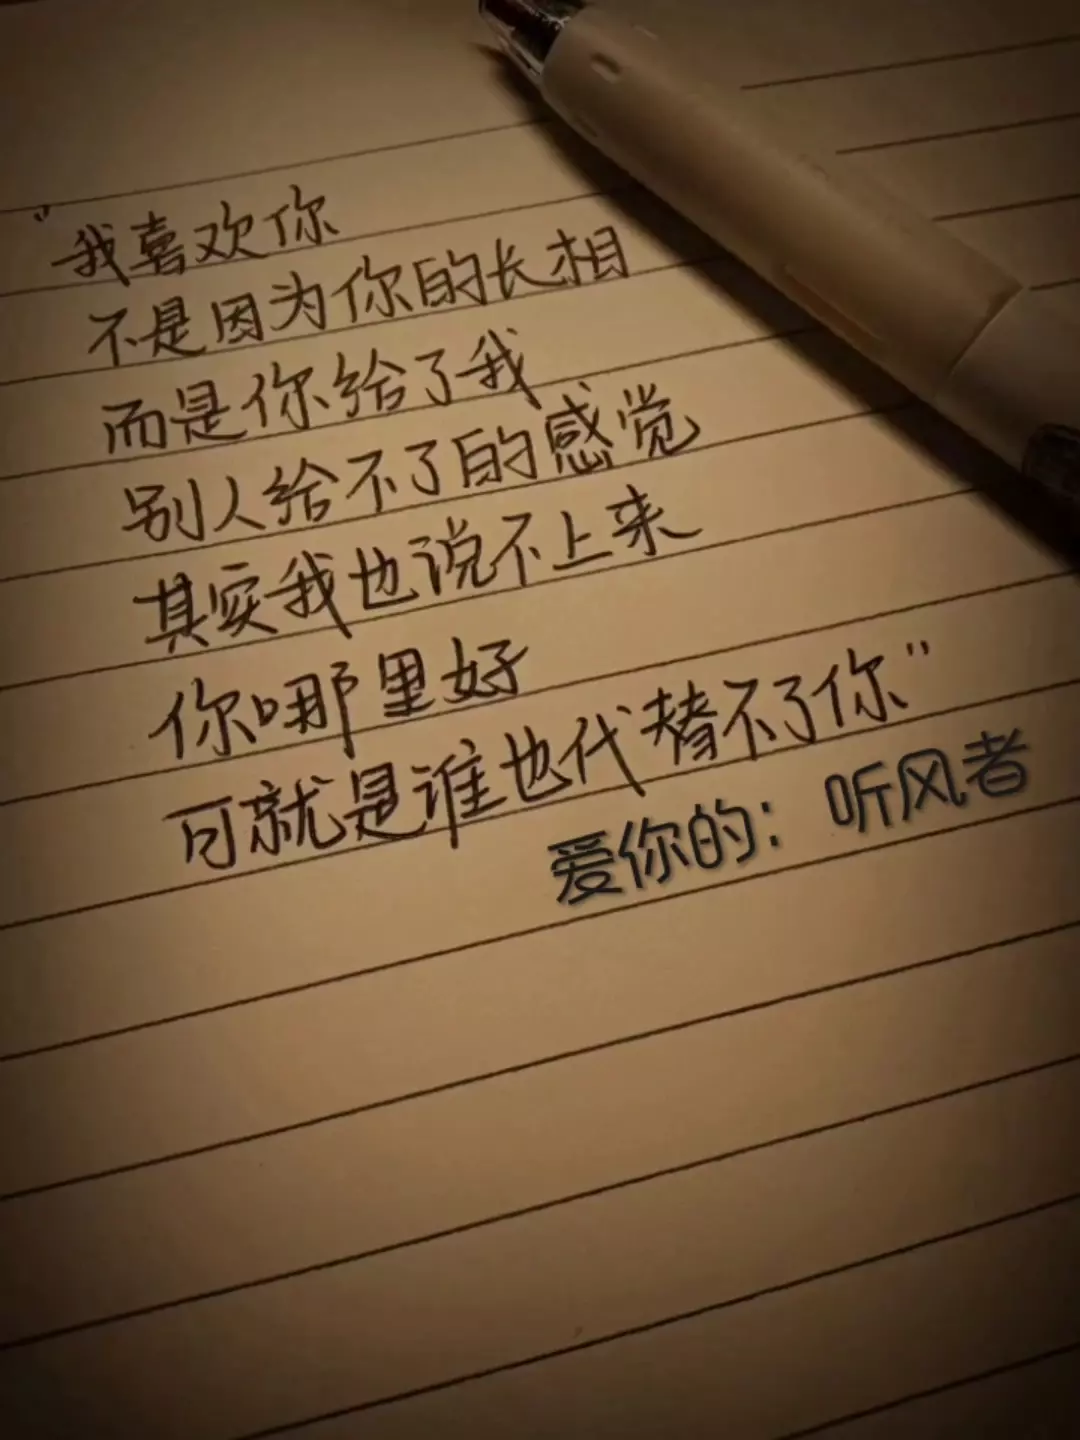 “我喜欢你
不是因为你的长相
而是你给了我
别人给不了的感觉
其实我也说不上来
你哪里好
可就是谁也代替不了你”
爱你的：听风者